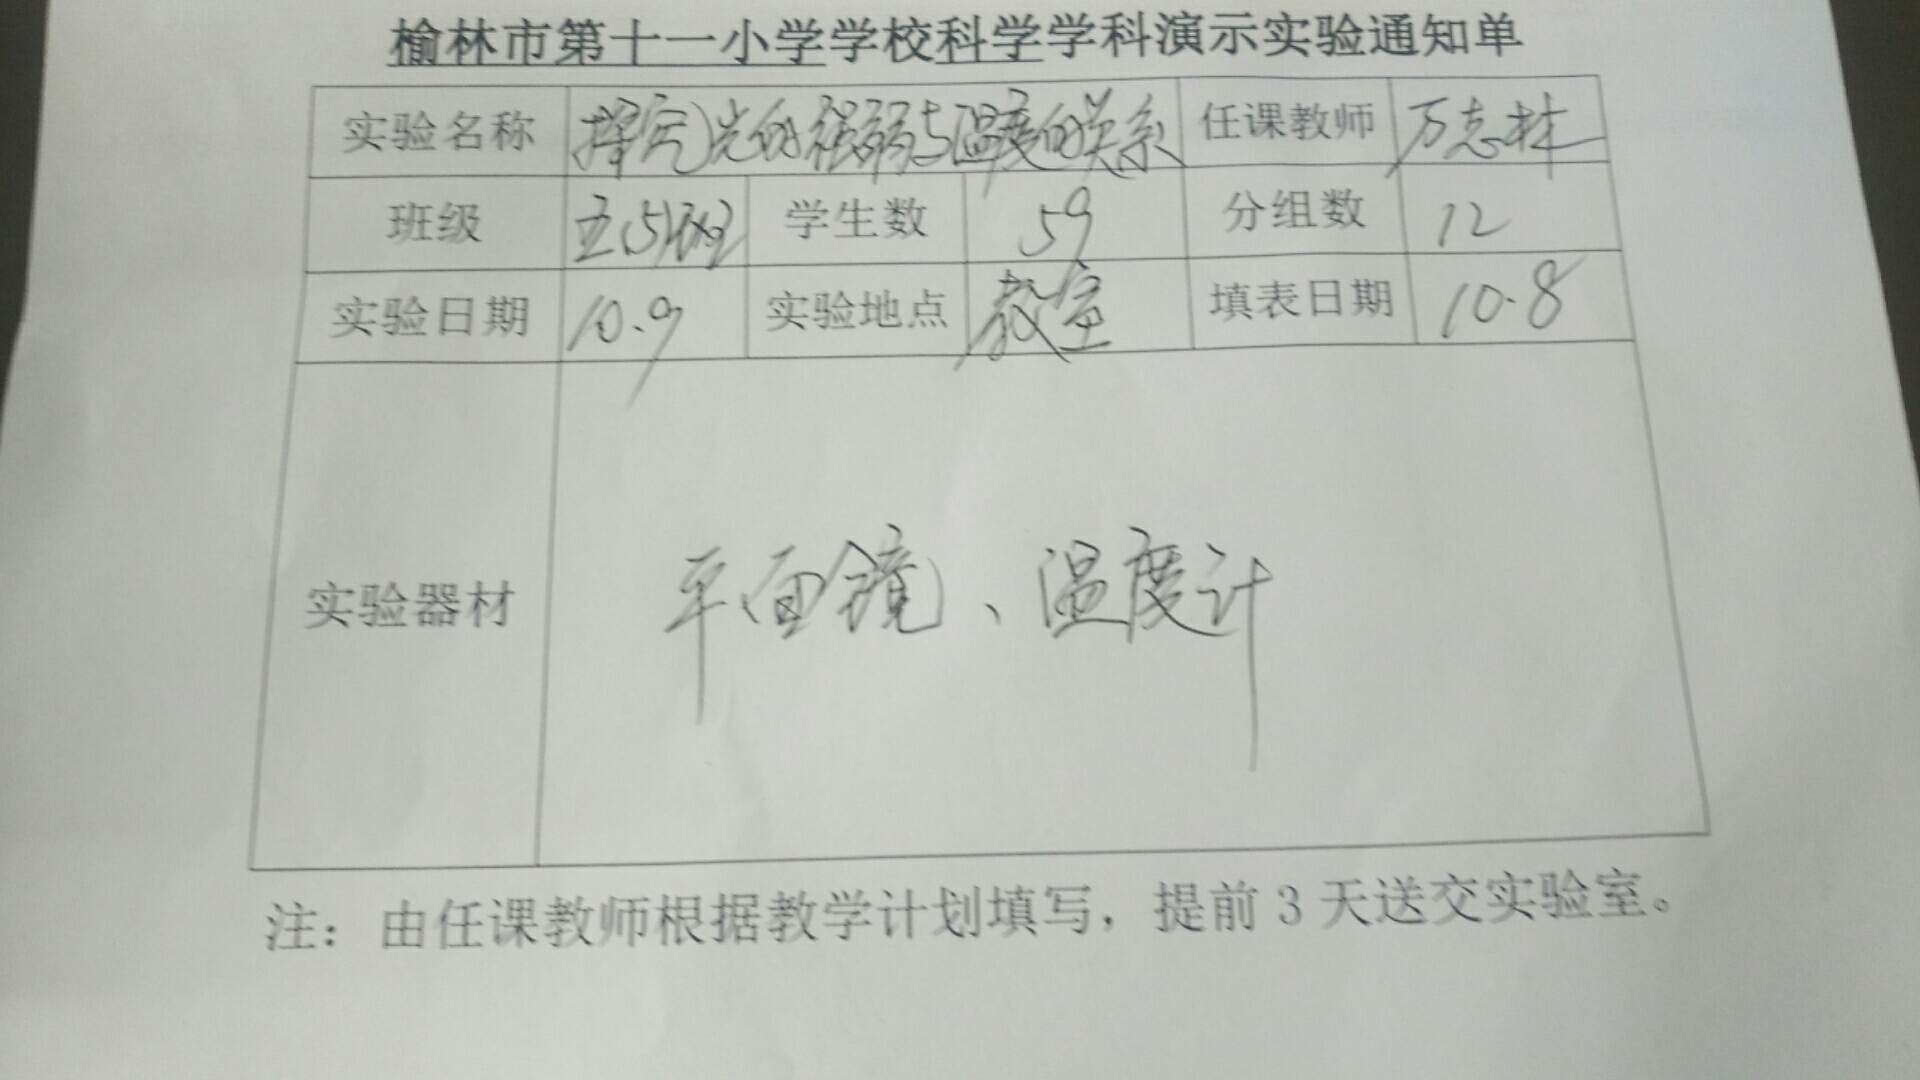 榆林市第十一小学学校科学学科演示实验通知单
实验名称 探究光的强弱与温度的关系 任课教师 万志林
班级 五、5班 学生数 59 分组数 12
实验日期 10.9 实验地点 教室 填表日期 10.8
实验器材 平面镜、温度计
注：由任课教师根据教学计划填写，提前 3 天送交实验室。